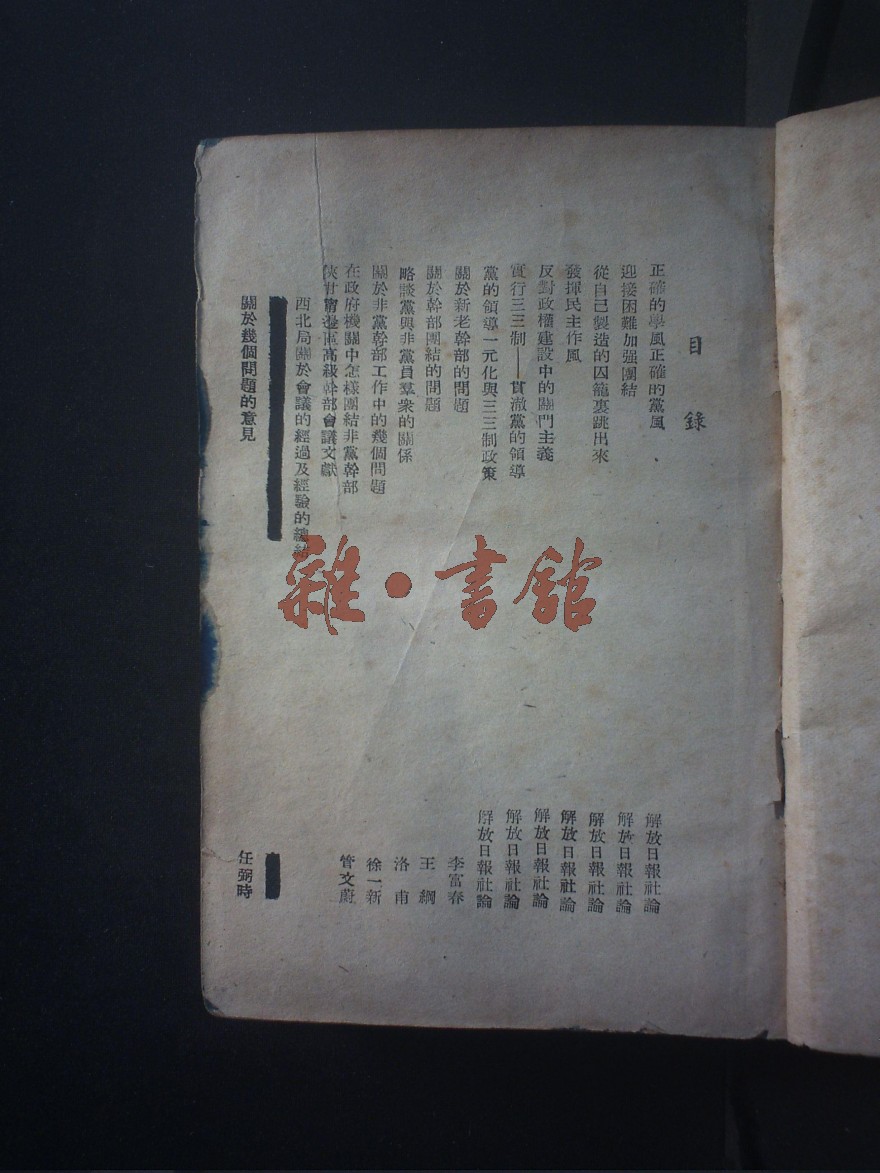 目錄
正確的學風正確的黨風 解放日報社論
迎接困難加强團結 解放日報社論
從自己製造的囚籠裏跳出來 解放日報社論
發揮民主作風 解放日報社論
反對政權建設中的關門主義 解放日報社論
實行三三制——貫澈黨的領導 解放日報社論
黨的領導一元化與三三制政策 解放日報社論
關於新老幹部的問題 李富春
關於幹部團結的問題 王綱
略談黨與非黨員羣衆的關係 洛甫
關於非黨幹部工作中的幾個問題 徐一新
在政府機關中怎樣團結非黨幹部 管文蔚
陝甘寧邊區高級幹部會議文獻
西北局關於會議的經過及經驗的總結
關於幾個問題的意見 任弼時
雜·書館